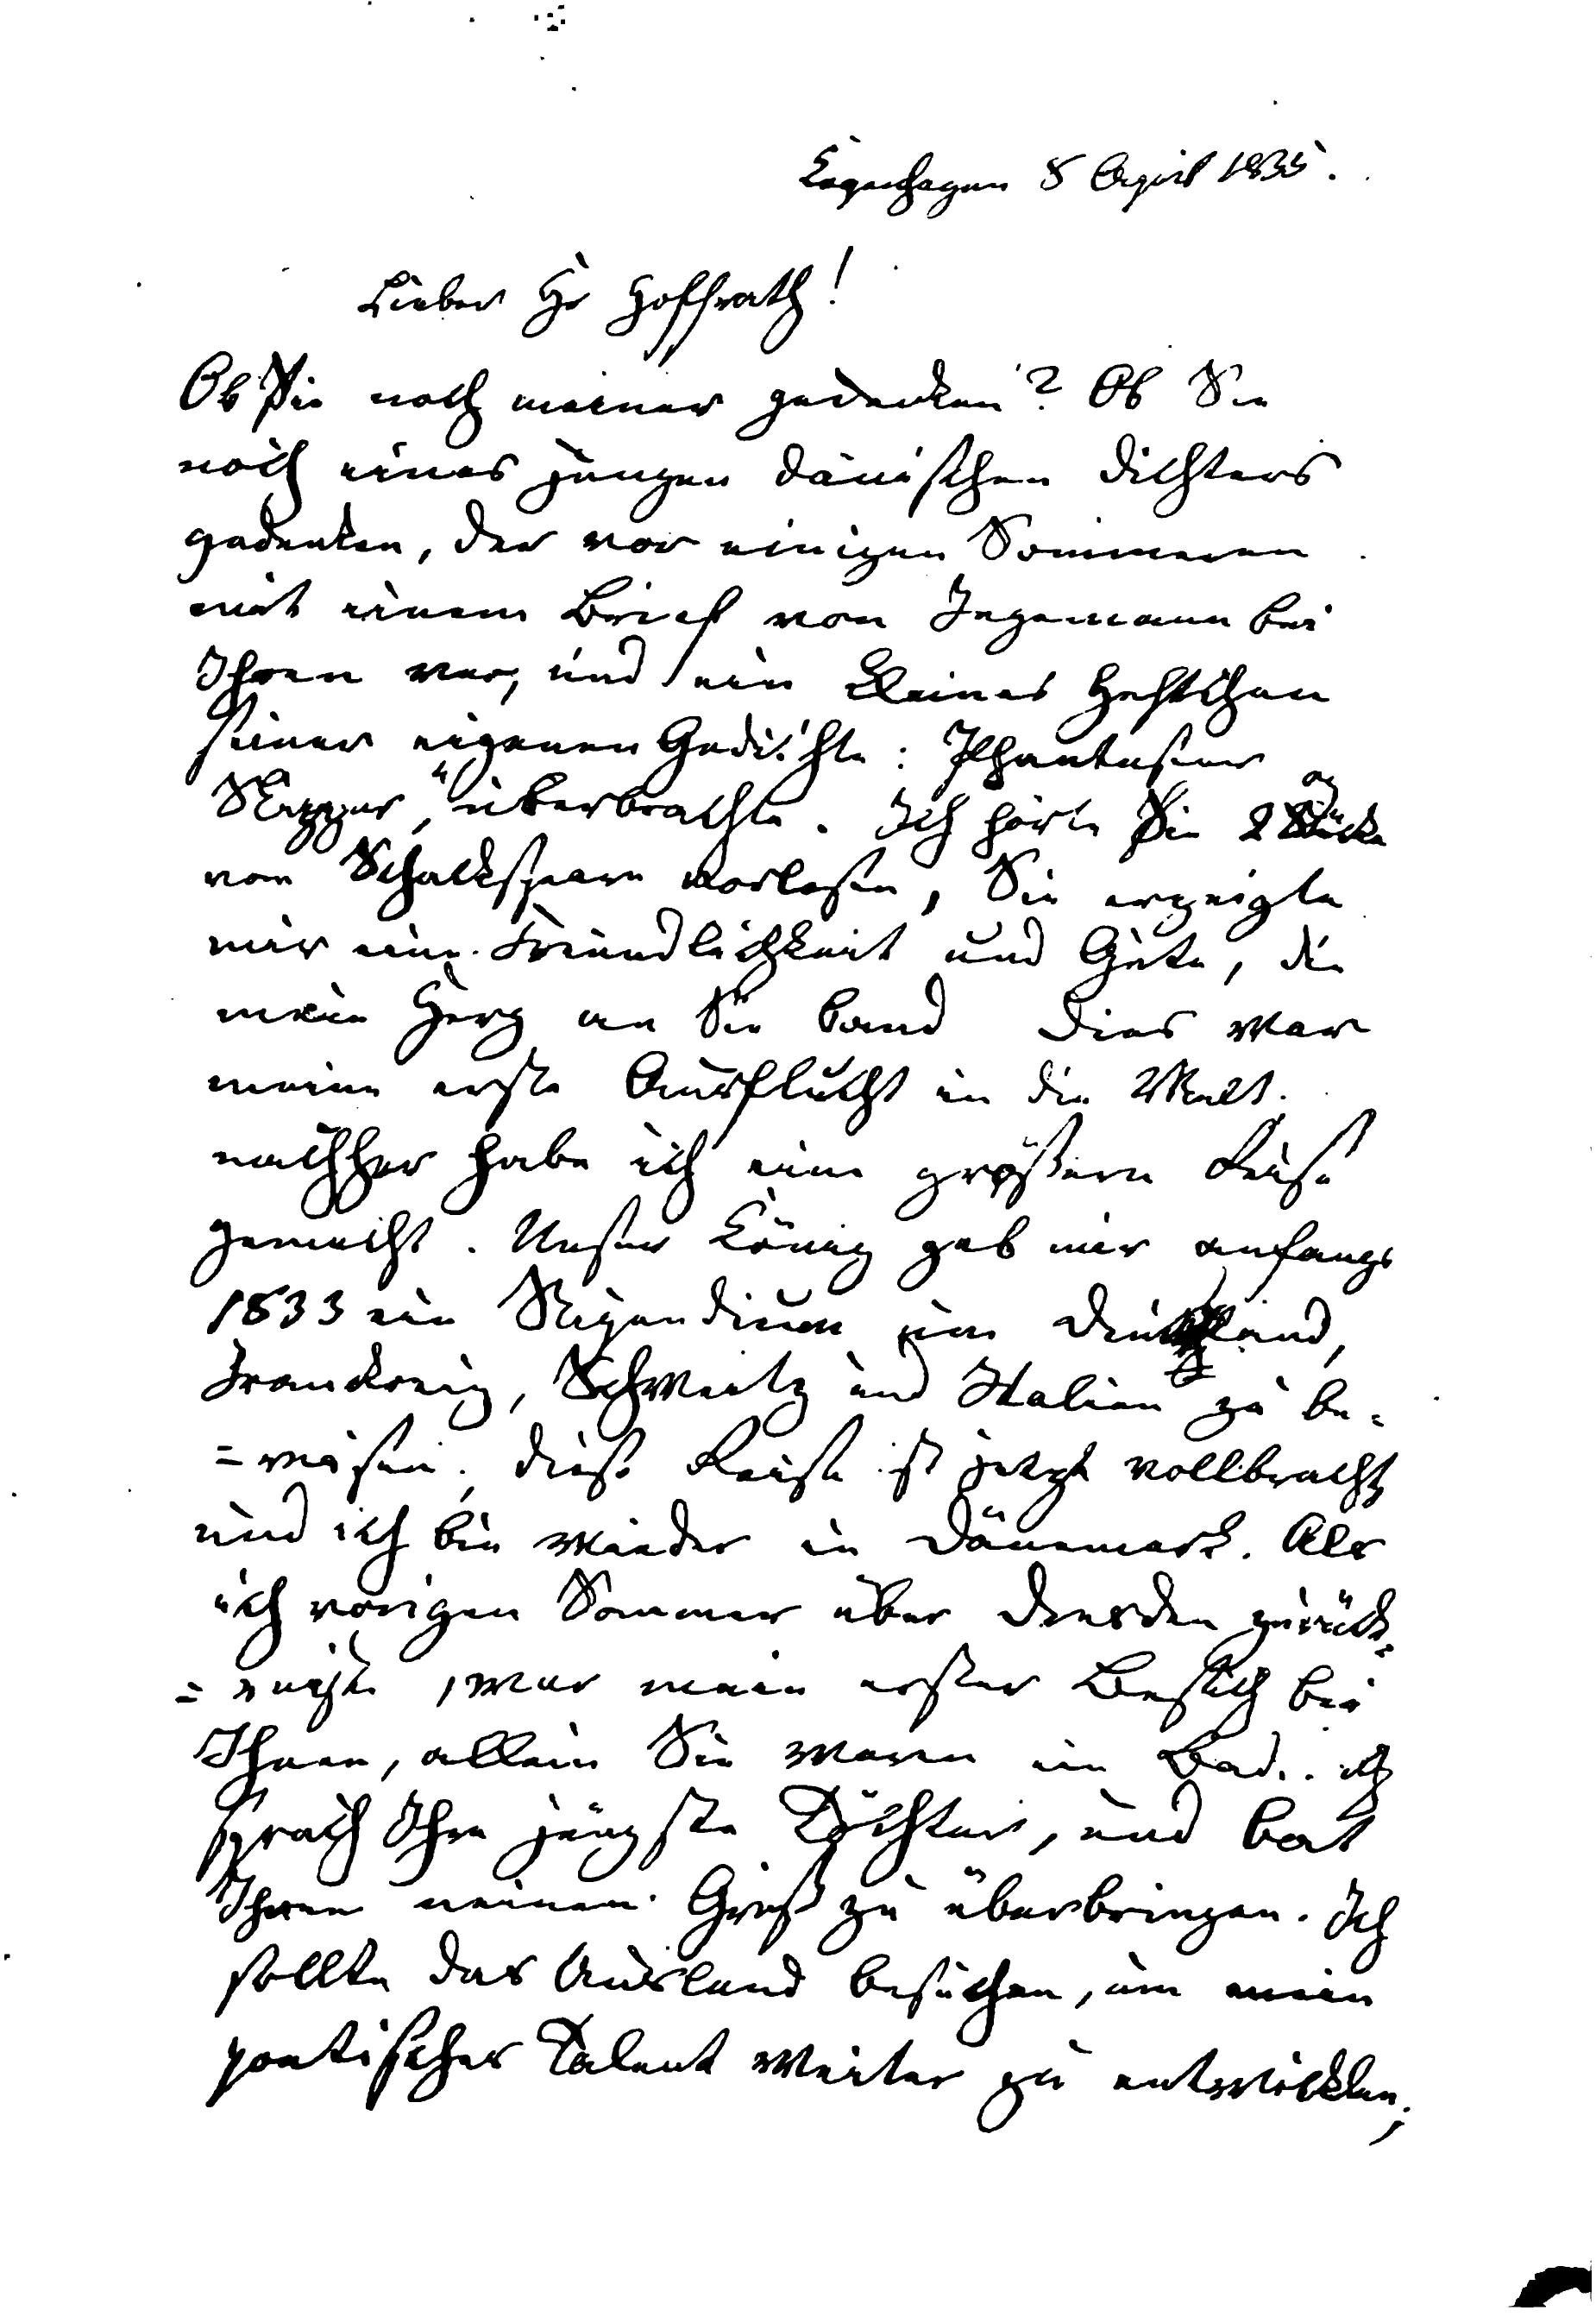 Copenhagen 8 April 1835.
Lieber Hr Hoffrath!
Ob Sie noch meiner gedenken? Ob Sie
noch eines jungen dänischen Dichters
gedenken, der vor einigen Sommeren
mit einem Brief von Ingemann bei
Ihnen war, und ein kleines Heftchen
seiner eigenen Gedichte: Phantasier og
Skizzer," überbrachte. Ich hörte Sie 2 Stücke
von Schackspeare vorlesen, Sie erzeigte
mir eine Freundlichkeit und Güte, die
mein Herz an Sie band dies war
meine erste Ausflucht in die Welt.
nachher habe ich eine größere Reise
gemacht. Unser König gab mir anfangs
1833 ein Stipendium um Deutschland,
Frankreig, Schweitz und Italien zu be=
=reisen; diese Reise ist jetzt vollbracht
und ich bin wieder in Dänemark. Als
ich vorigen Sommer über Dresden zurück=
=reiste, war mein erster Besuch bei
Ihnen, allein Sie waren im Bad.. ich
sprach Ihre jüngste Tochter, und bat
Ihnen meinen Gruß zu überbringen. Ich
sollte das Ausland besuchen, um mein
poetisches Talent weiter zu entwicklen;